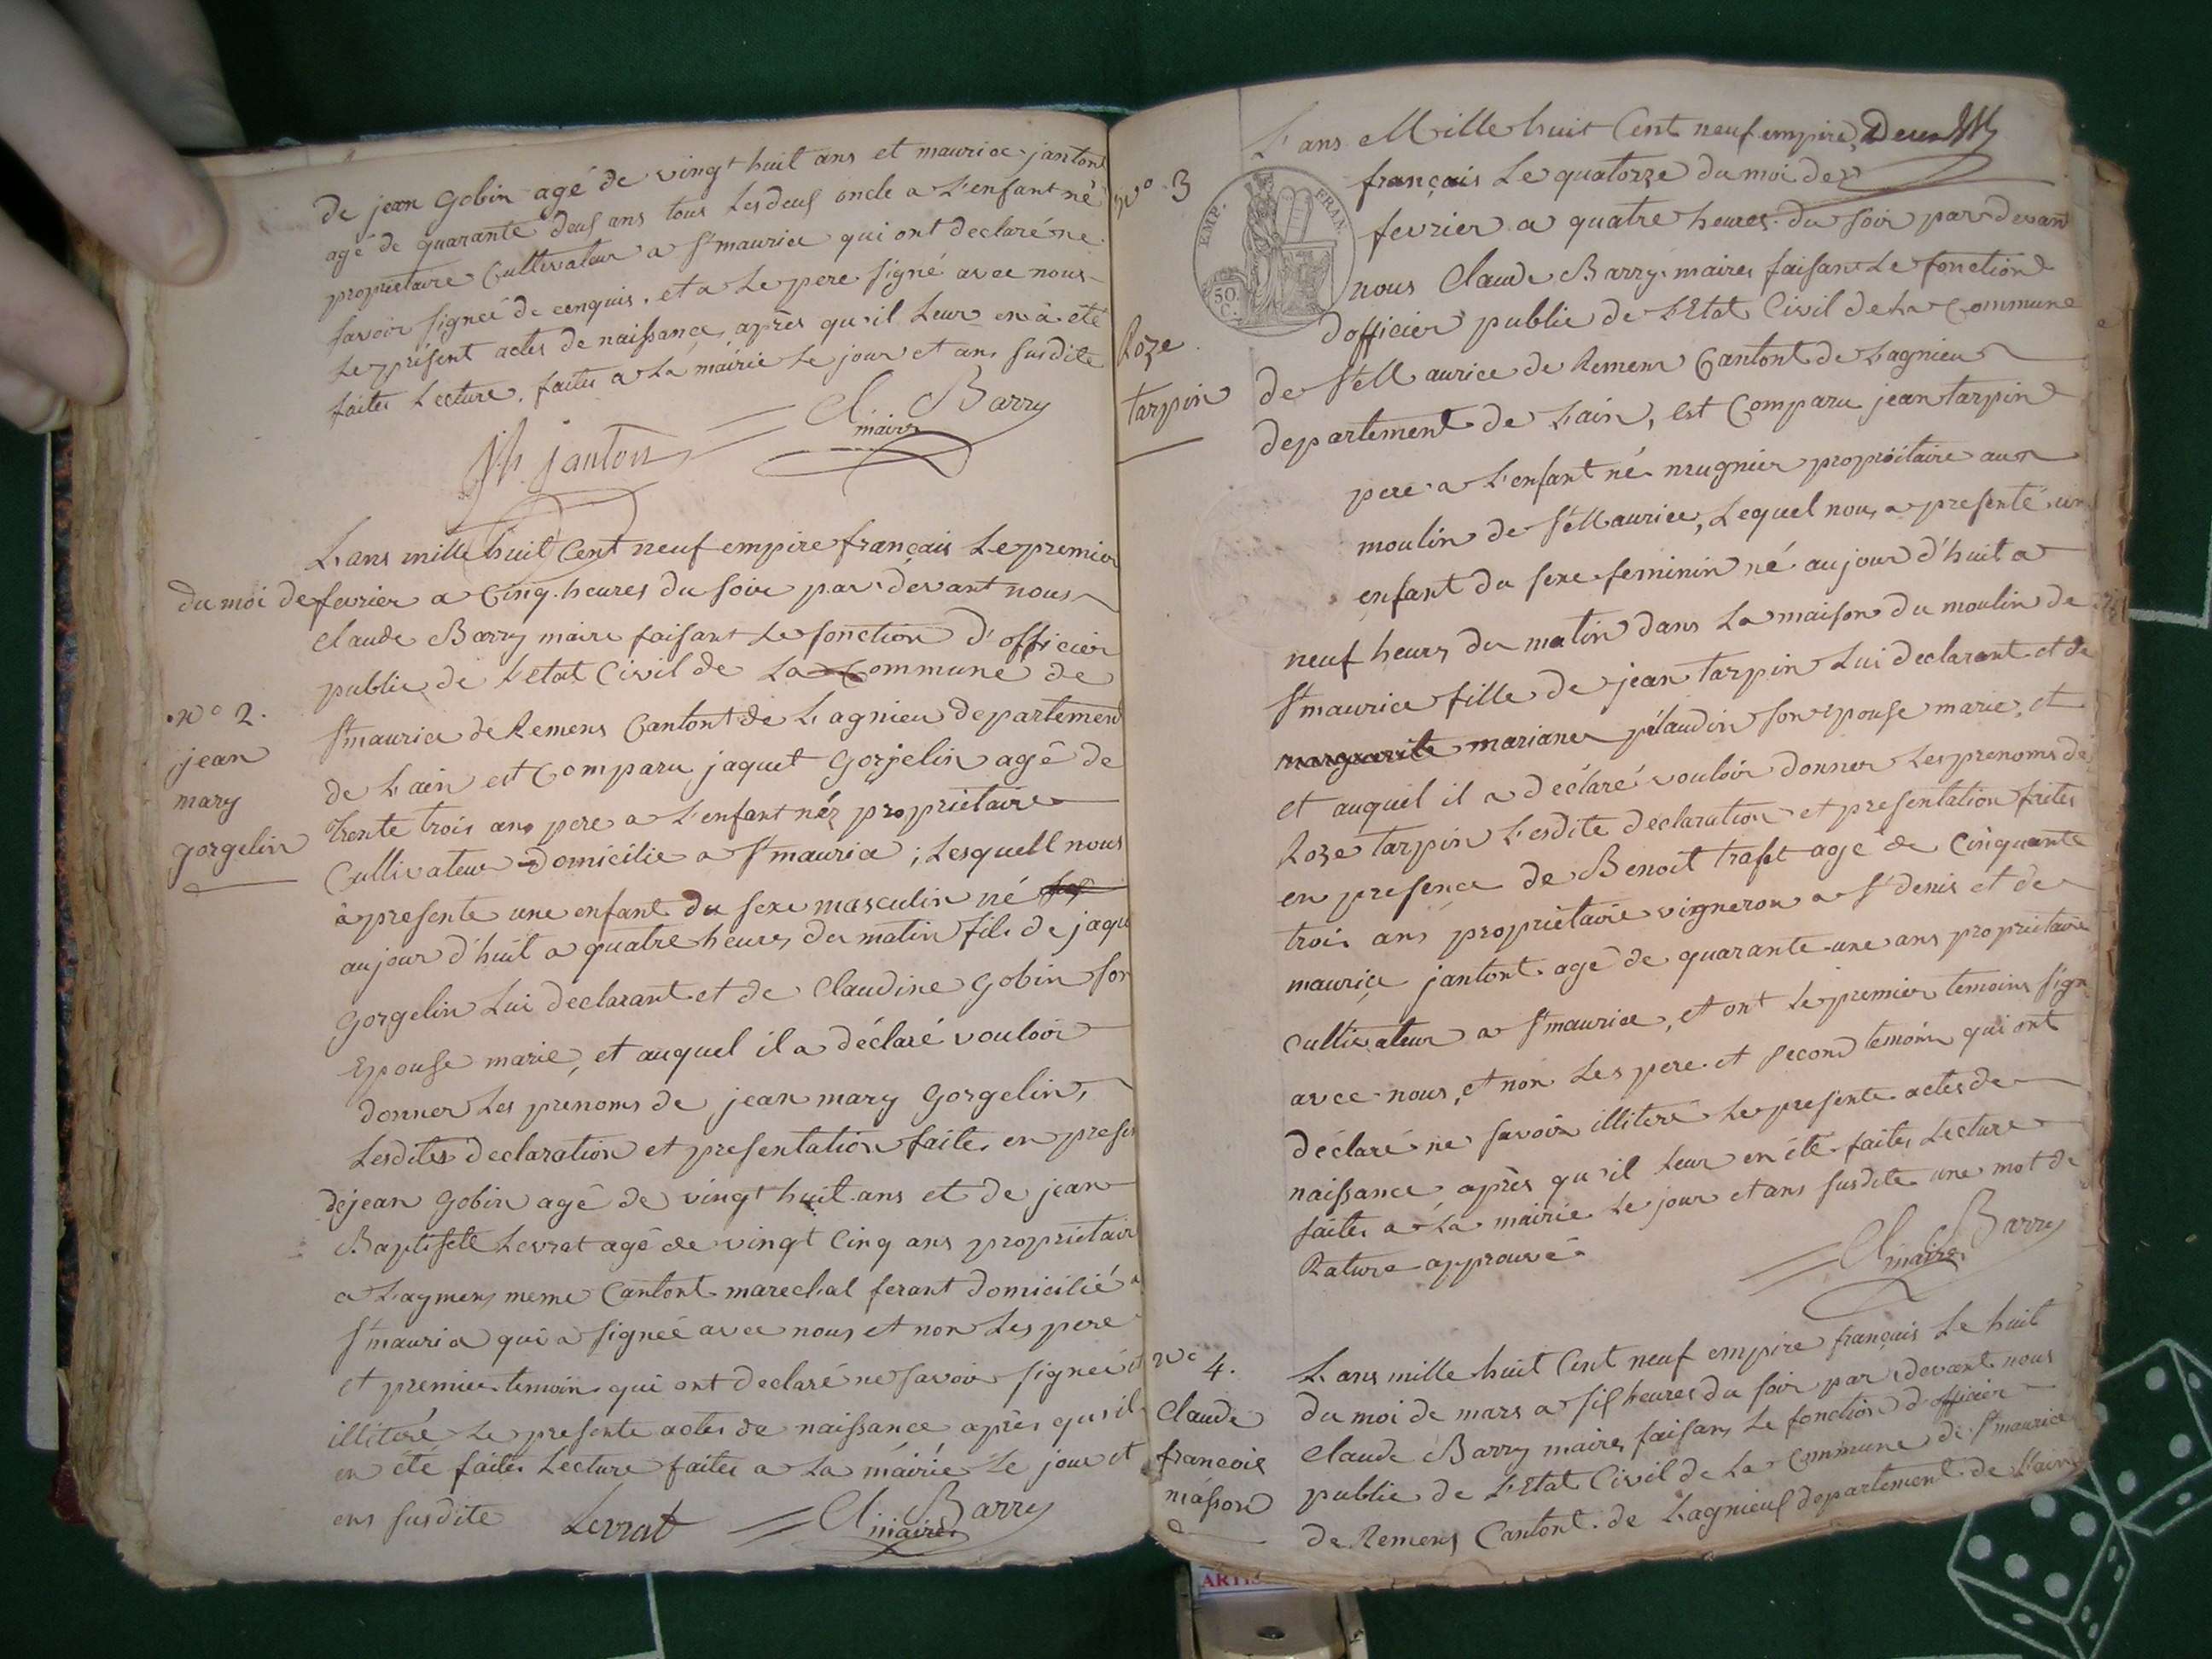 de jean gobin agé de vingt huit ans et maurice jantont
agé de quarante deus ans tous Les deus oncle a L'enfant né
propriétaire Cultivateur a St maurice qui ont declaré ne
savoir signée de cenquis. et a Le pere signé avec nous
Le présent actes de naissance, après qu'il Leur en à été
faites Lecture. faites a La mairie Le jour et ans susdite
Jh. jantont Cl. Barry
maire
L'ans mille huit Cent neuf empire français Le premier
du moi de fevrier a Cinq heures du soir par dévant nous
claude Barry maire faisant Le fonction d'officier
public de L'etat Civil de La Commune de
n° 2.
St maurice de Remens Cantont de Lagnieu departement
jean
de Lain est Comparu jaquet Gorjelin agé de
mary
trente trois ans pere a L'enfant néz propriétaire
gorgelin
Cultivateur domicilie a St maurice ; Lesquell nous
à presente une enfant du sexe masculin né
aujour d'huit a quatre heures du matin fils de jaqu
Gorgelin Lui declarant et de Claudine Gobin son
Epouse marié, et auquel il a déclaré vouloir
donner Les prenoms de jean mary Gorgelin,
Lesdites declaration et presentation faites en presen
de jean Gobin agé de vingt huit ans et de jean
Baptiste Levrat agé de vingt Cinq ans propriétair
a Lagmens meme Cantont marechal ferant domicilié a
St mauria qui a signeé avec nous et non Les pere
et premier temoins qui ont declaré ne savoir signeé
illiteré Le presente actes de naissance après qu'il
en été faites Lecture faites a La mairie Le jour et
ans susdite Levrat Cl. Barry
maire
n° 3
L'ans Mille huit Cent neuf empire
français Le quatorze du moi de
EMP. FRAN.
50. C.
fevrier a quatre heures du soir par devan
nous Claude Barry maires faisant Le fonction
d'officier public de L'Etat Civil de La Commune
Roze
tarpin
de St Maurice de Remens Cantont de Lagnieu
departement de Lain, est Comparu jean tarpin
pere a L'enfant né mugnier propriétaire au
moulin de St Maurice, Lequel nous a presenté un
enfant du sexe feminin né aujour d'huit a
neuf heures du matin dans La maison du moulin de
St maurice fille de jean tarpin Lui declarant et de
marguerite mariane pélaudin son epouse marie, et
et auquil il a déclaré vouloir donner Les prenoms de
Roze tarpin L'esdite declaration et presentation faites
en presence de Benoit trafet agé de Cinquante
trois ans propriétaire vigneron a St denis et de
maurice jantont agé de quarante une ans propriétaire
cultivateur a St maurice, et ont Le premier temoins sign
avec nous, et non Les pere et second temoin qui ont
déclaré ne savoir illiteré Le presente actes de
naissance après qu'il Leur en été faites Lecture
faites a La mairie Le jour et ans susdite une mot de
Rature approuvé
Cl. Barry
maire
n° 4.
L'ans mille huit Cent neuf empire français Le huit
du moi de mars a sis heures du soir par devant nous
Claude
Claude Barry maires faisant Le fonction d'officier
francois
public de L'Etat Civil de La Commune de St maurice
masson
de Remens Cantont de Lagnieus departement de Lain